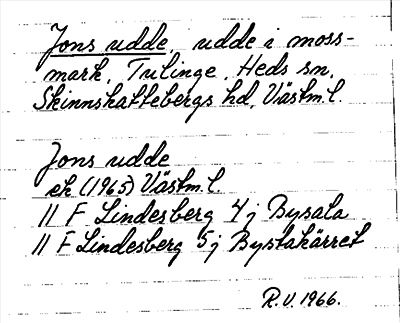 Jons udde, udde i moss-
mark, Tulinge, Heds sn,
Skinnskattebergs hd, Västm.l.
Jons udde
ek (1965) Västm.l.
11 F Lindesberg 4j Bysala
11 F Lindesberg 5j Bystakärret
R.V. 1966.